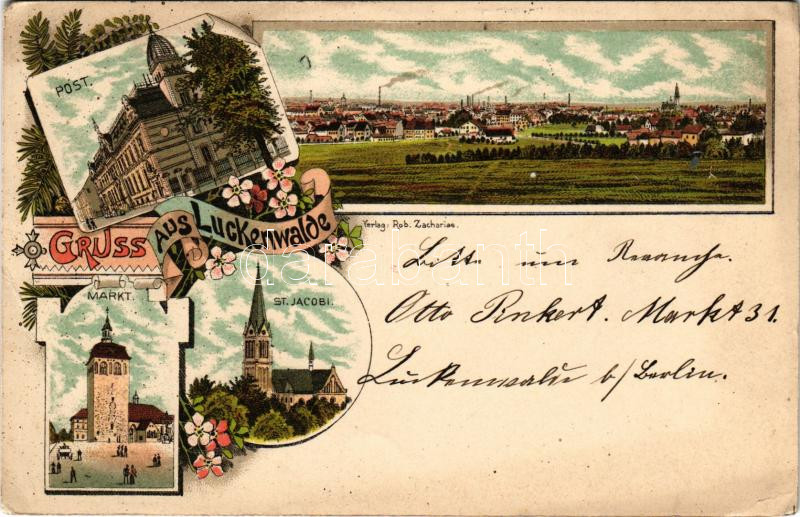 POST.
GRUSS AUS Luckenwalde
MARKT.
ST. JACOBI.
Verlag: Rob. Zacharias.
Bitte um Revanche.
Otto Pinkert. Markt 31.
Luckenwalde b/Berlin.
darabanth